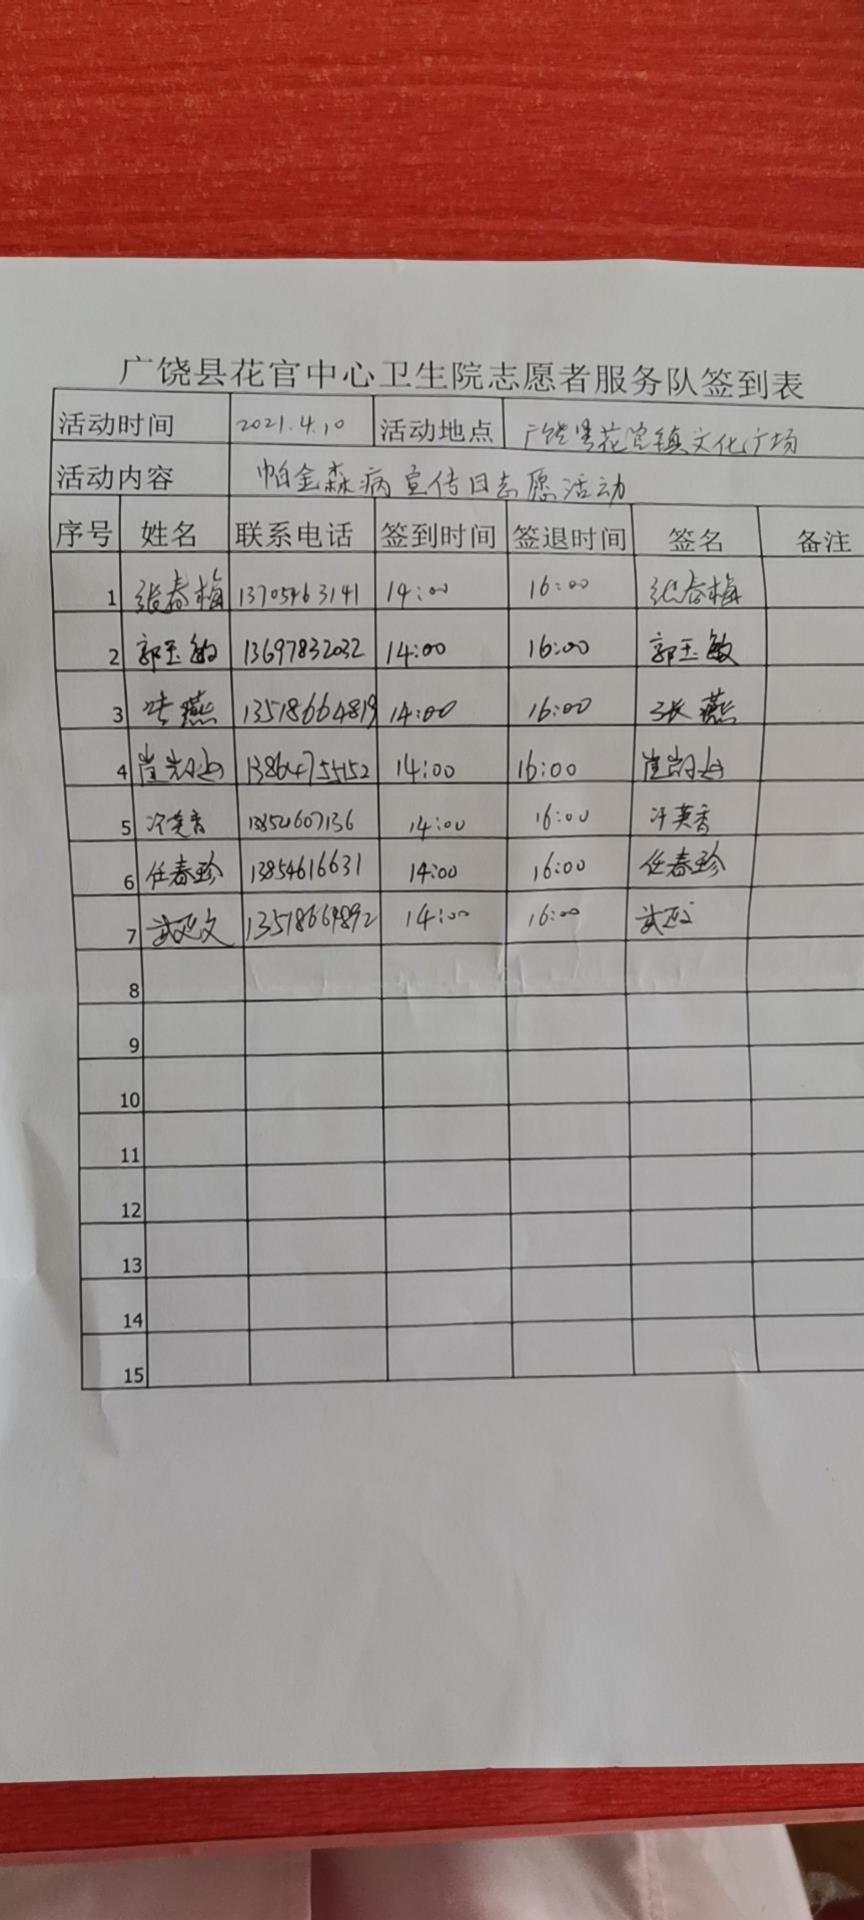 广饶县花官中心卫生院志愿者服务队签到表
活动时间 2021.4.10 活动地点 广饶县花官镇文化广场
活动内容 帕金森病宣传日志愿活动
序号 姓名 联系电话 签到时间 签退时间 签名 备注
1 张春梅 13705463141 14:00 16:00 张春梅
2 郭玉敏 13697832032 14:00 16:00 郭玉敏
3 张燕 13518664819 14:00 16:00 张燕
4 13864755152 14:00 16:00
5 14:00 16:00
6 任春珍 13854616631 14:00 16:00 任春珍
7 武延文 13518664892 14:00 16:00 武延文
8
9
10
11
12
13
14
15